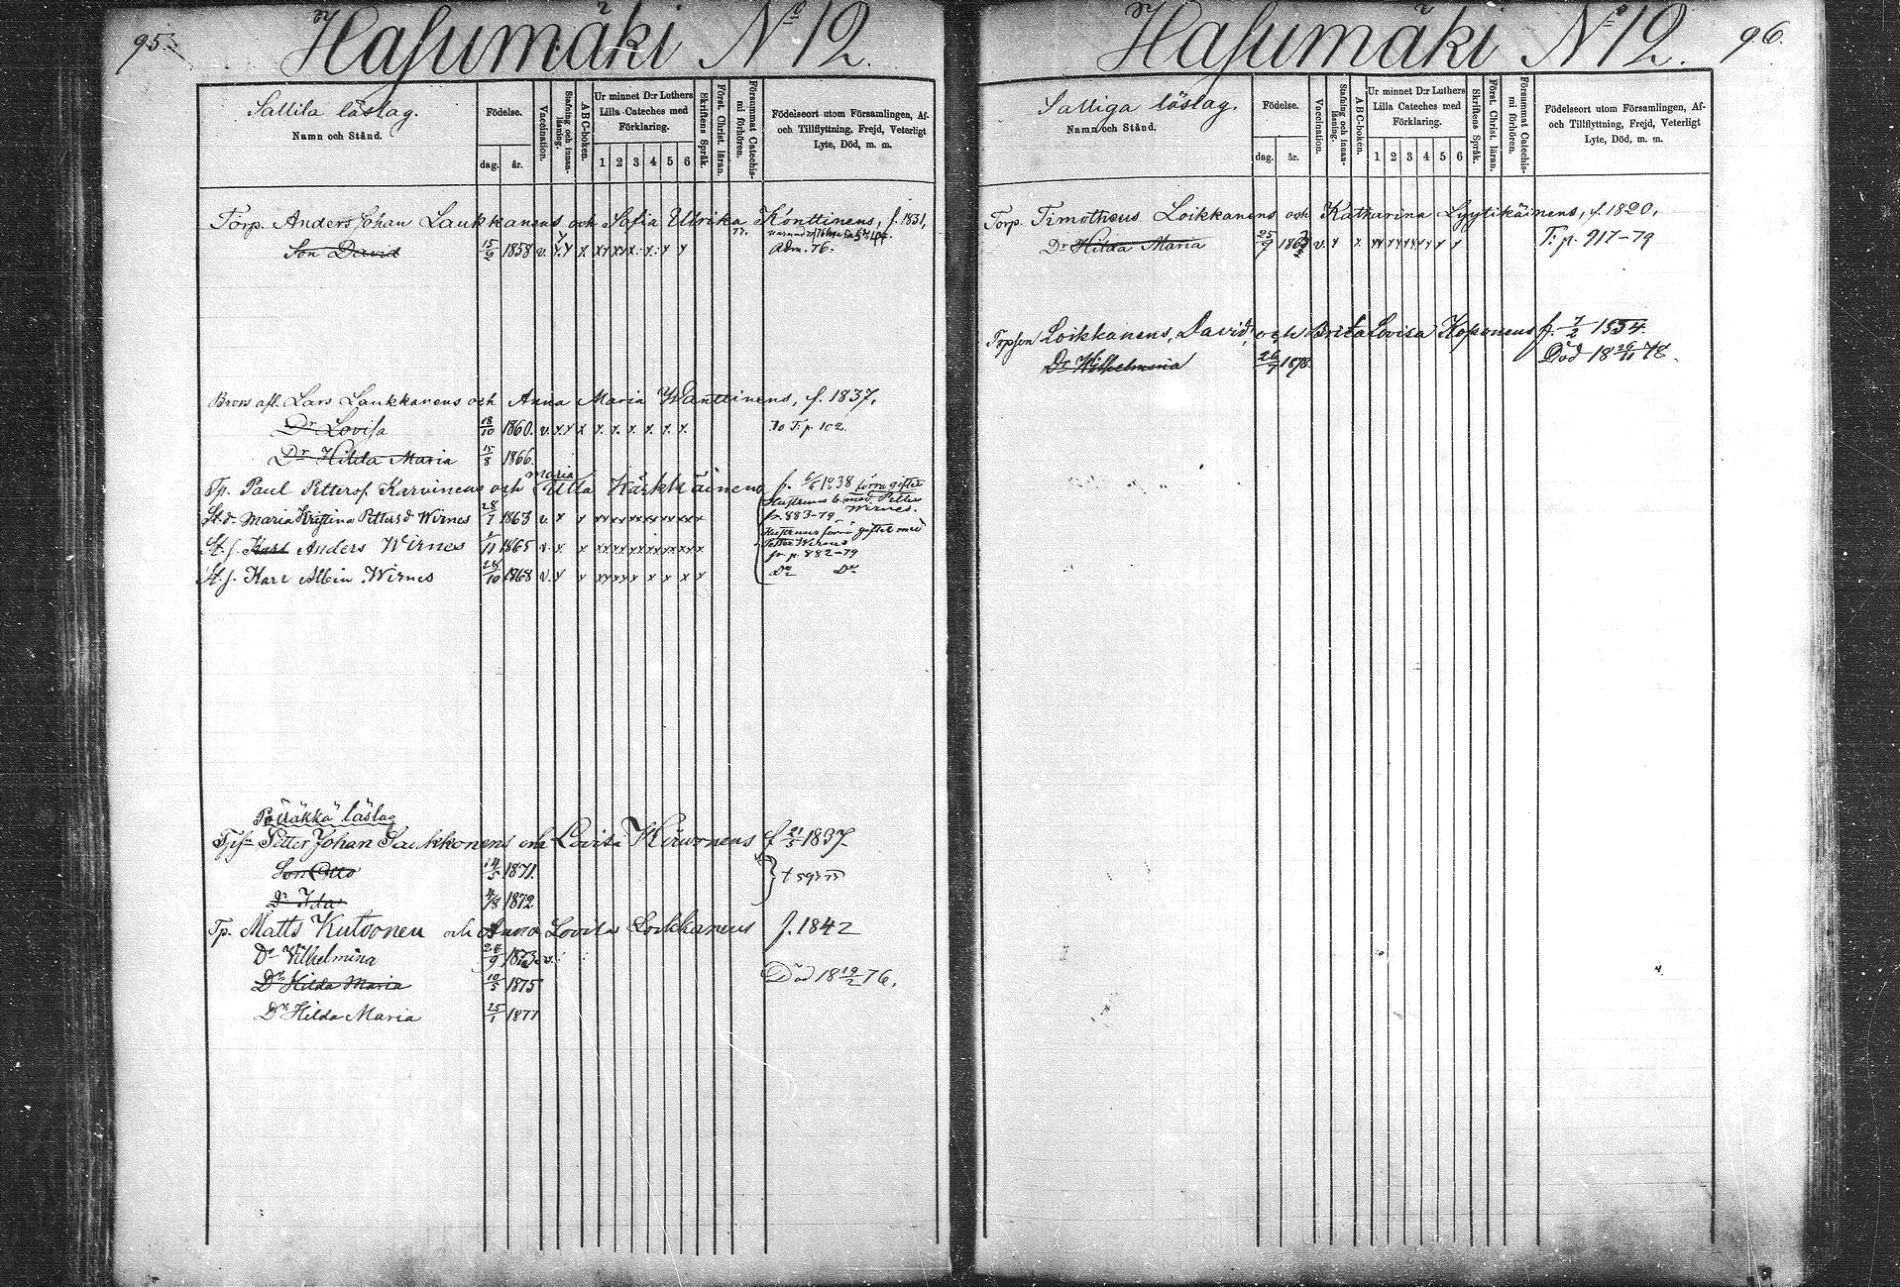 95.
Hasumäki No 12.
Sallila läslag.
Namn och Stånd.
Födelse.
dag. år.
Vaccination.
Stafning och innan-läsning.
ABC-boken.
Ur minnet D:r Luthers
Lilla Cateches med
Förklaring.
1 2 3 4 5 6
Skriftens Språk.
Först. Christ. läran.
Försummat Catechis-mi förhören.
Födelseort utom Församlingen, Af-
och Tillflyttning, Frejd, Veterligt
Lyte, Död, m. m.
Torp. Anders Johan Laukkanens och Sofia Ulrika Konttinens, f. 1831,
Son David 15/2 1858 v.
Adm. 76.
Brors afl. Lars Laukkanens och Anna Maria Wanttinens, f. 1837.
Dr Lovisa 18/10 1860. v. Do T. p. 102
Dr Hilda Maria 15/8 1866
Tp. Paul Petters. Karvinens och Maria Ulla Kärkkäinens f. 1838 förra gången
St. d. Maria Kristina Pettersd Wirnes 28/7 1863 v. p. 883-79
St. s. Karl Anders Wirnes 1865 v. fr p. 882-79
St. s. Karl Albin Wirnes 28/10 1868 v. Do Do
Pölläkkä läslag
Petter Johan Saukkonens och Lovisa Hirvonens f. 21/5 1837.
Son Otto 14/5 1871.
Dr Ida 4/8 1872
Tp. Matts Kutvonen och Anna Lovisa Loikkanens f. 1842
Dr Vilhelmina 24/9 1873 v.
Dr Hilda Maria 10/5 1875 Död 18 19/2 76.
Dr Hilda Maria 25/1 1877
Hasumäki No 12. 96.
Salliga läslag.
Namn och Stånd.
Födelse.
dag. år.
Vaccination.
Stafning och innan-läsning.
ABC-boken.
Ur minnet D:r Luthers
Lilla Cateches med
Förklaring.
1 2 3 4 5 6
Skriftens Språk.
Först. Christ. läran.
Försummat Catechis-mi förhören.
Födelseort utom Församlingen, Af-
och Tillflyttning, Frejd, Veterligt
Lyte, Död, m. m.
Torp. Timotheus Loikkanens och Katharina Lyytikäinens, f. 1820,
Dr Hilda Maria 25/9 v. T. p. 917-79
Torpson Loikkanens, David, och Brita Lovisa Koponens f. 7/2 1854.
Dr Wilhelmina 26/7 1878. Död 18 26/11 78.